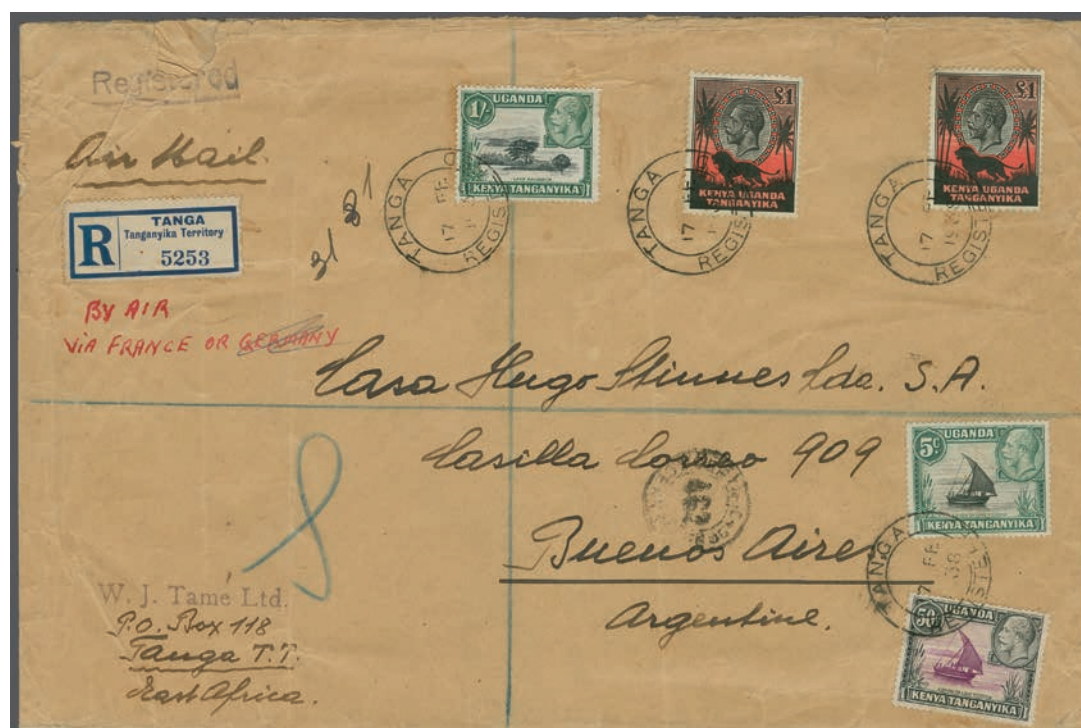 Registered
Air Mail.
R
TANGA
Tanganyika Territory
5253
BY AIR
VIA FRANCE OR GERMANY
UGANDA
1/-
KENYA TANGANYIKA
£1
KENYA UGANDA
TANGANYIKA
£1
KENYA UGANDA
TANGANYIKA
TANGA
17 FE
REGISTE
TANGA
17 FE
REGISTE
TANGA
17 FE
REGISTE
Casa Hugo Stinnes Lda. S.A.
Casilla Correo 909
Buenos Aires
Argentine.
UGANDA
5c
KENYA TANGANYIKA
TANGA
17 FE 38
UGANDA
50c
KENYA TANGANYIKA
W. J. Tame Ltd.
P.O. Box 118
Tanga T.T.
East Africa.